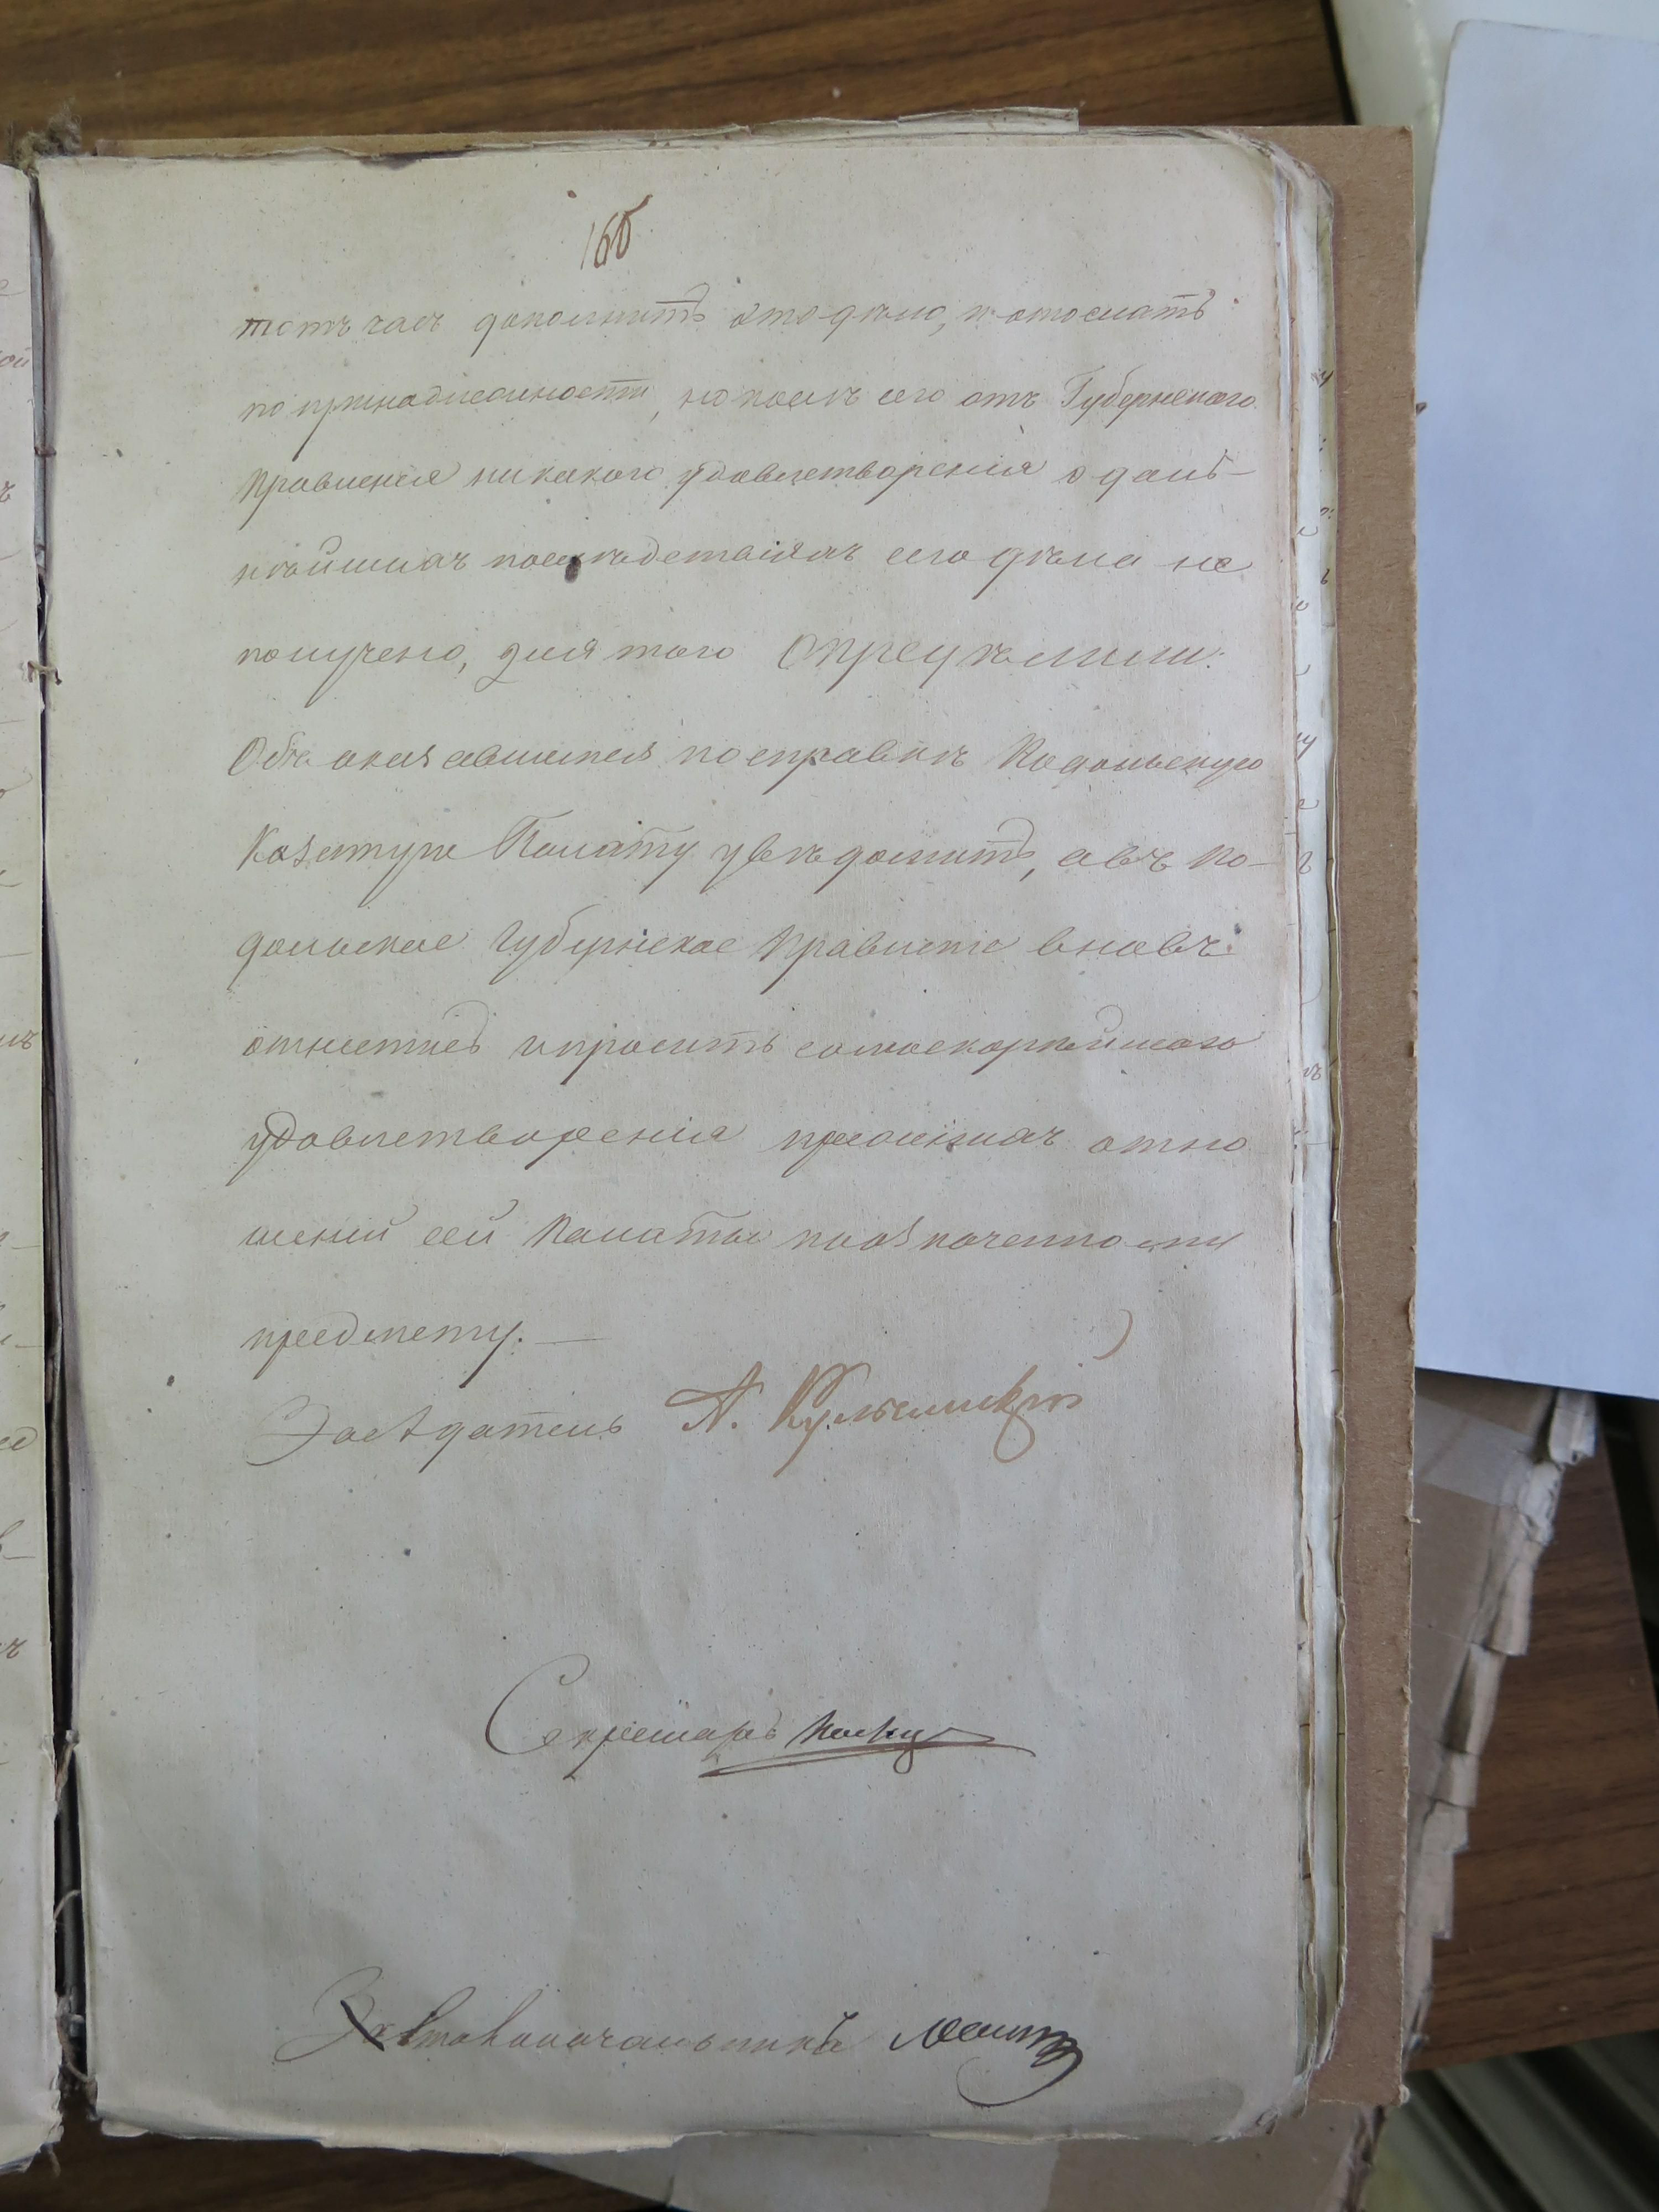 166
тотъ часъ дополнить это дѣло, и отослать
по принадлежности, но поелѣ сего отъ Губернскаго
Правленія никакого удовлетворенія о даль-
нѣйшихъ послѣдствіяхъ сего дѣла не
получено, для того Опредѣлили:
Объ оказавшемся по справкѣ Подольскую
Казенную Палату увѣдомить, а въ По-
дольское Губернское Правленіе вновь
отнестись и просить самоскорѣйшаго
удовлетворенія прежнихъ отно
шеній сей Палаты по
предмету. —
Засѣдатель А.
Секретарь
Столоначальника